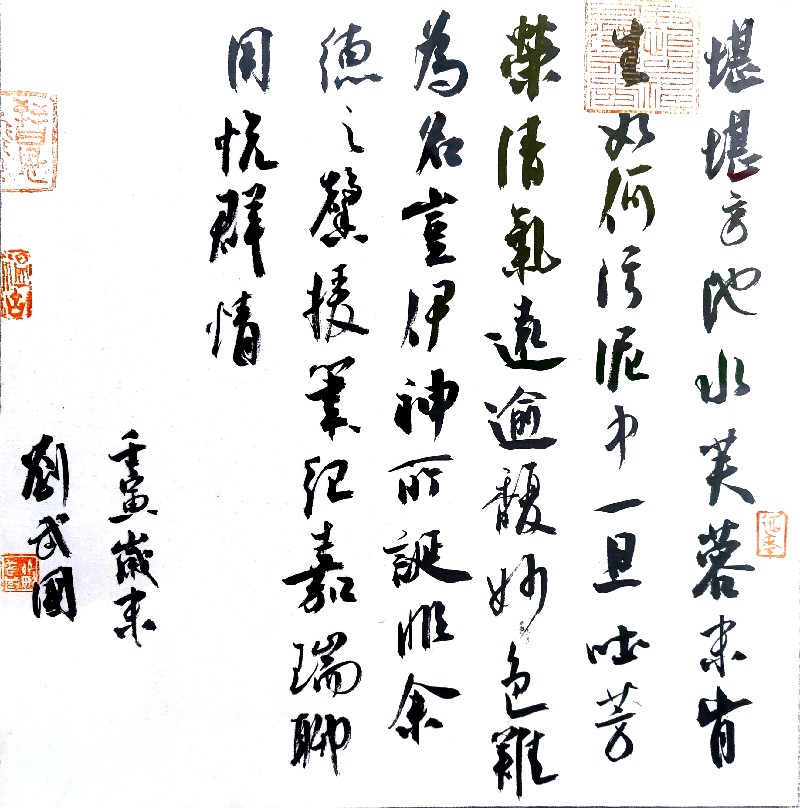 堪堪方池水芙蓉未肯
生如何污泥中一旦吐芳
榮清氣遠逾馥妙色難
為名豈伊神所誕惟余
德之馨援筆紀嘉瑞聊
用悅群情
壬寅歲末
劉武國